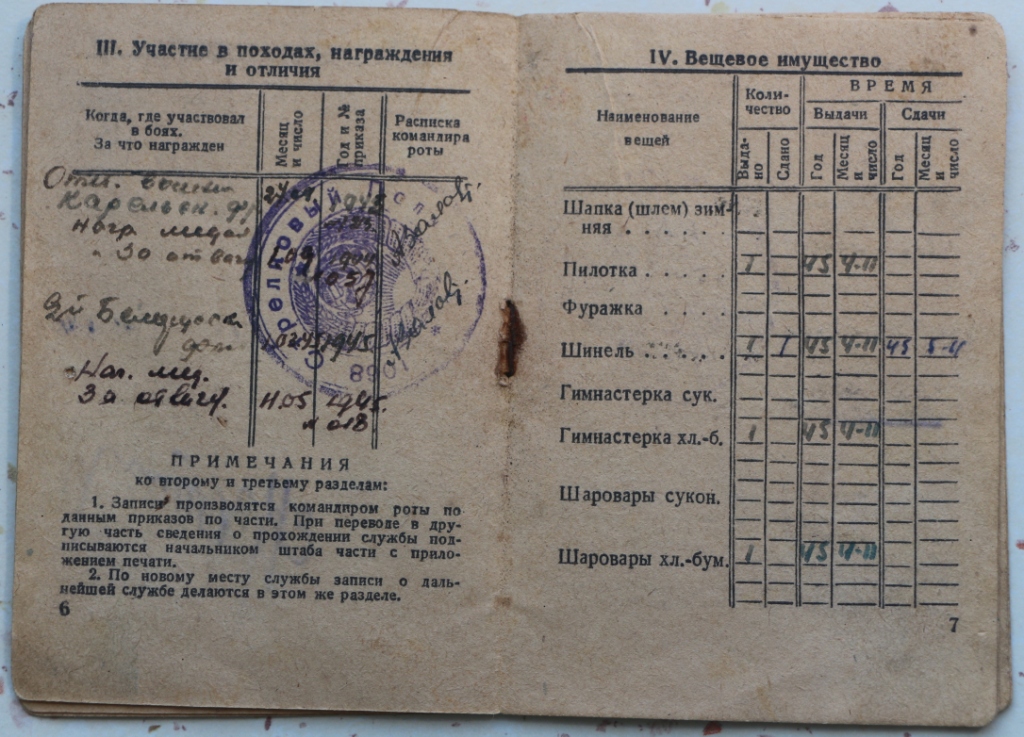 III. Участие в походах, награждения
и отличия
Когда, где участвовал
в боях.
За что награжден
Месяц
и число
Год и №
приказа
Расписка
командира
роты
Карельск. фр
1945
Нагр. медал
За отваг
1.09
Стрелковый
1068
2й Белорусск
1945
Наг. мед.
За отвагу.
11.05 1945.
ПРИМЕЧАНИЯ
ко второму и третьему разделам:
1. Записи производятся командиром роты по
данным приказов по части. При переводе в дру-
гую часть сведения о прохождении службы под-
писываются начальником штаба части с прило-
жением печати.
2. По новому месту службы записи о даль-
нейшей службе делаются в этом же разделе.
6
IV. Вещевое имущество
Наименование
вещей
Коли-
чество
ВРЕМЯ
Выдачи
Сдачи
Выда-
но
Сдано
Год
Месяц
и
число
Год
Месяц
и
число
Шапка (шлем) зим-
няя . . . . . .
Пилотка . . . . 1 45 4-II
Фуражка . . . .
Шинель . . . . 1 1 45 4-II 45 5-II
Гимнастерка сук.
Гимнастерка хл.-б. 1 45 4-II
Шаровары сукон.
Шаровары хл.-бум. 1 45 4-II
7